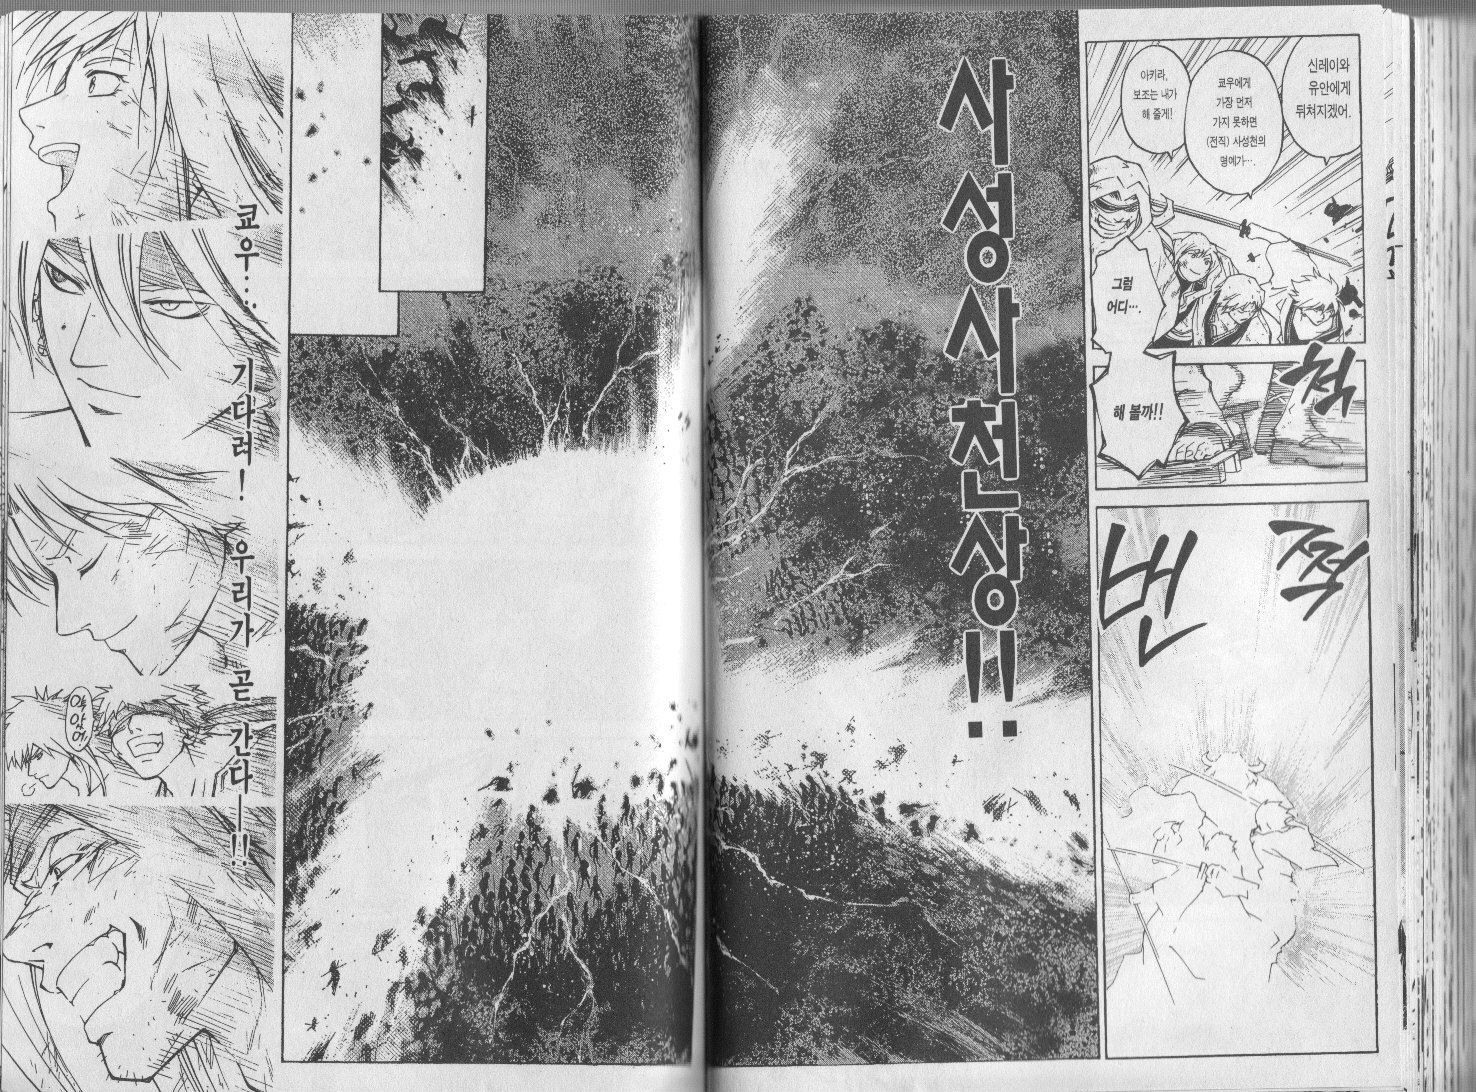 신레이와
유안에게
뒤쳐지겠어.
쿄우에게
가장 먼저
가지 못하면
(전직) 사성천의
명예가….
아키라,
보조는 내가
해 줄게!
그럼
어디….
척
해 볼까!!
번
쩍
사성사천상!!
쿄우…
기다려!
우리가
곧
간다—!!